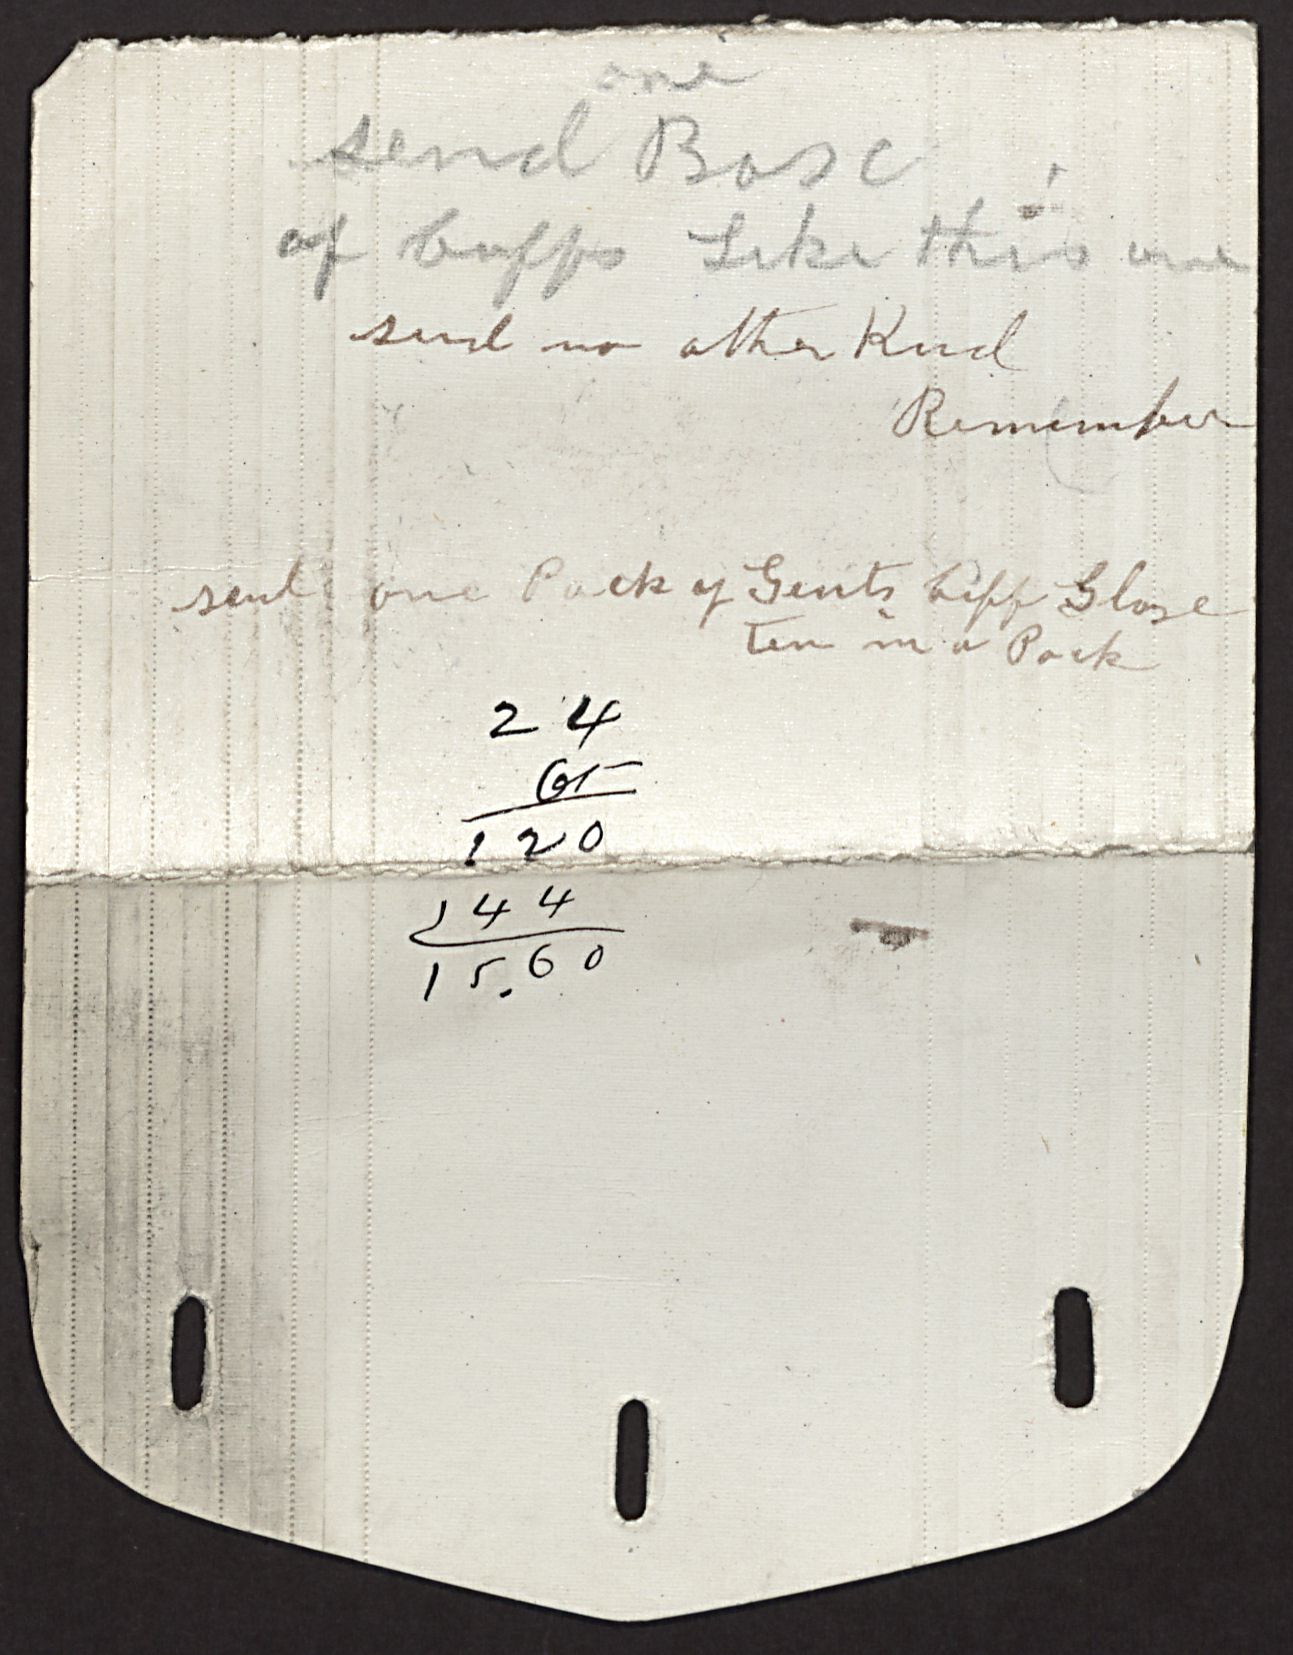 one
send Boxe
of Cuffs Like this one
send no other Kind
Remember
send one Pack of Gents Cuff Glose
ten in a Pack
24
65
120
144
15.60